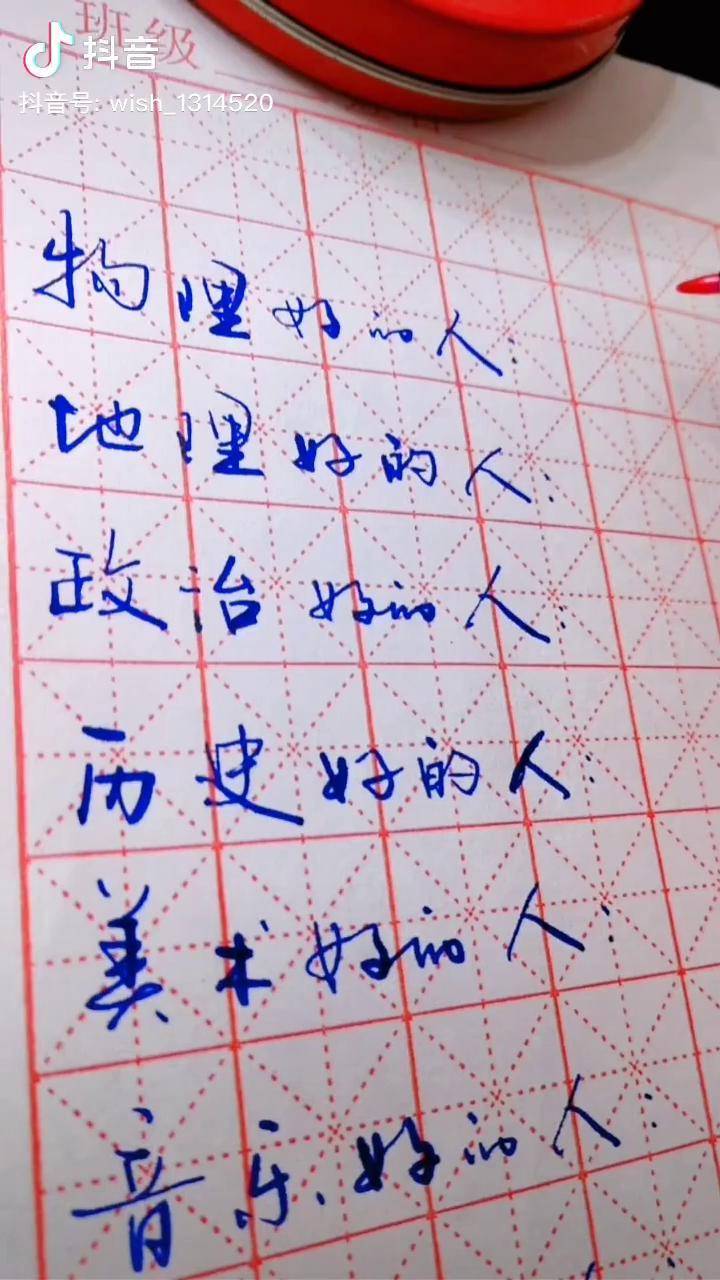 班级
抖音
抖音号: wish_1314520
物理好的人:
地理好的人:
政治好的人:
历史好的人:
美术好的人:
音乐好的人: